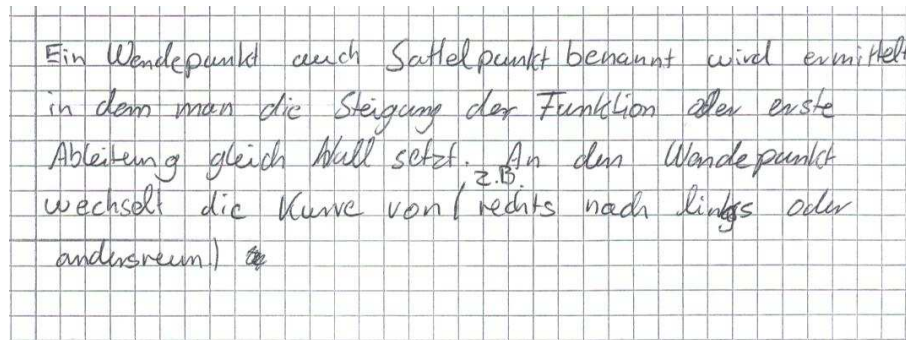 Ein Wendepunkt auch Sattelpunkt benannt wird ermittelt
in dem man die Steigung der Funktion oder erste
Ableitung gleich Null setzt. An den Wendepunkt
wechselt die Kurve von (z.B. rechts nach links oder
andersreum)